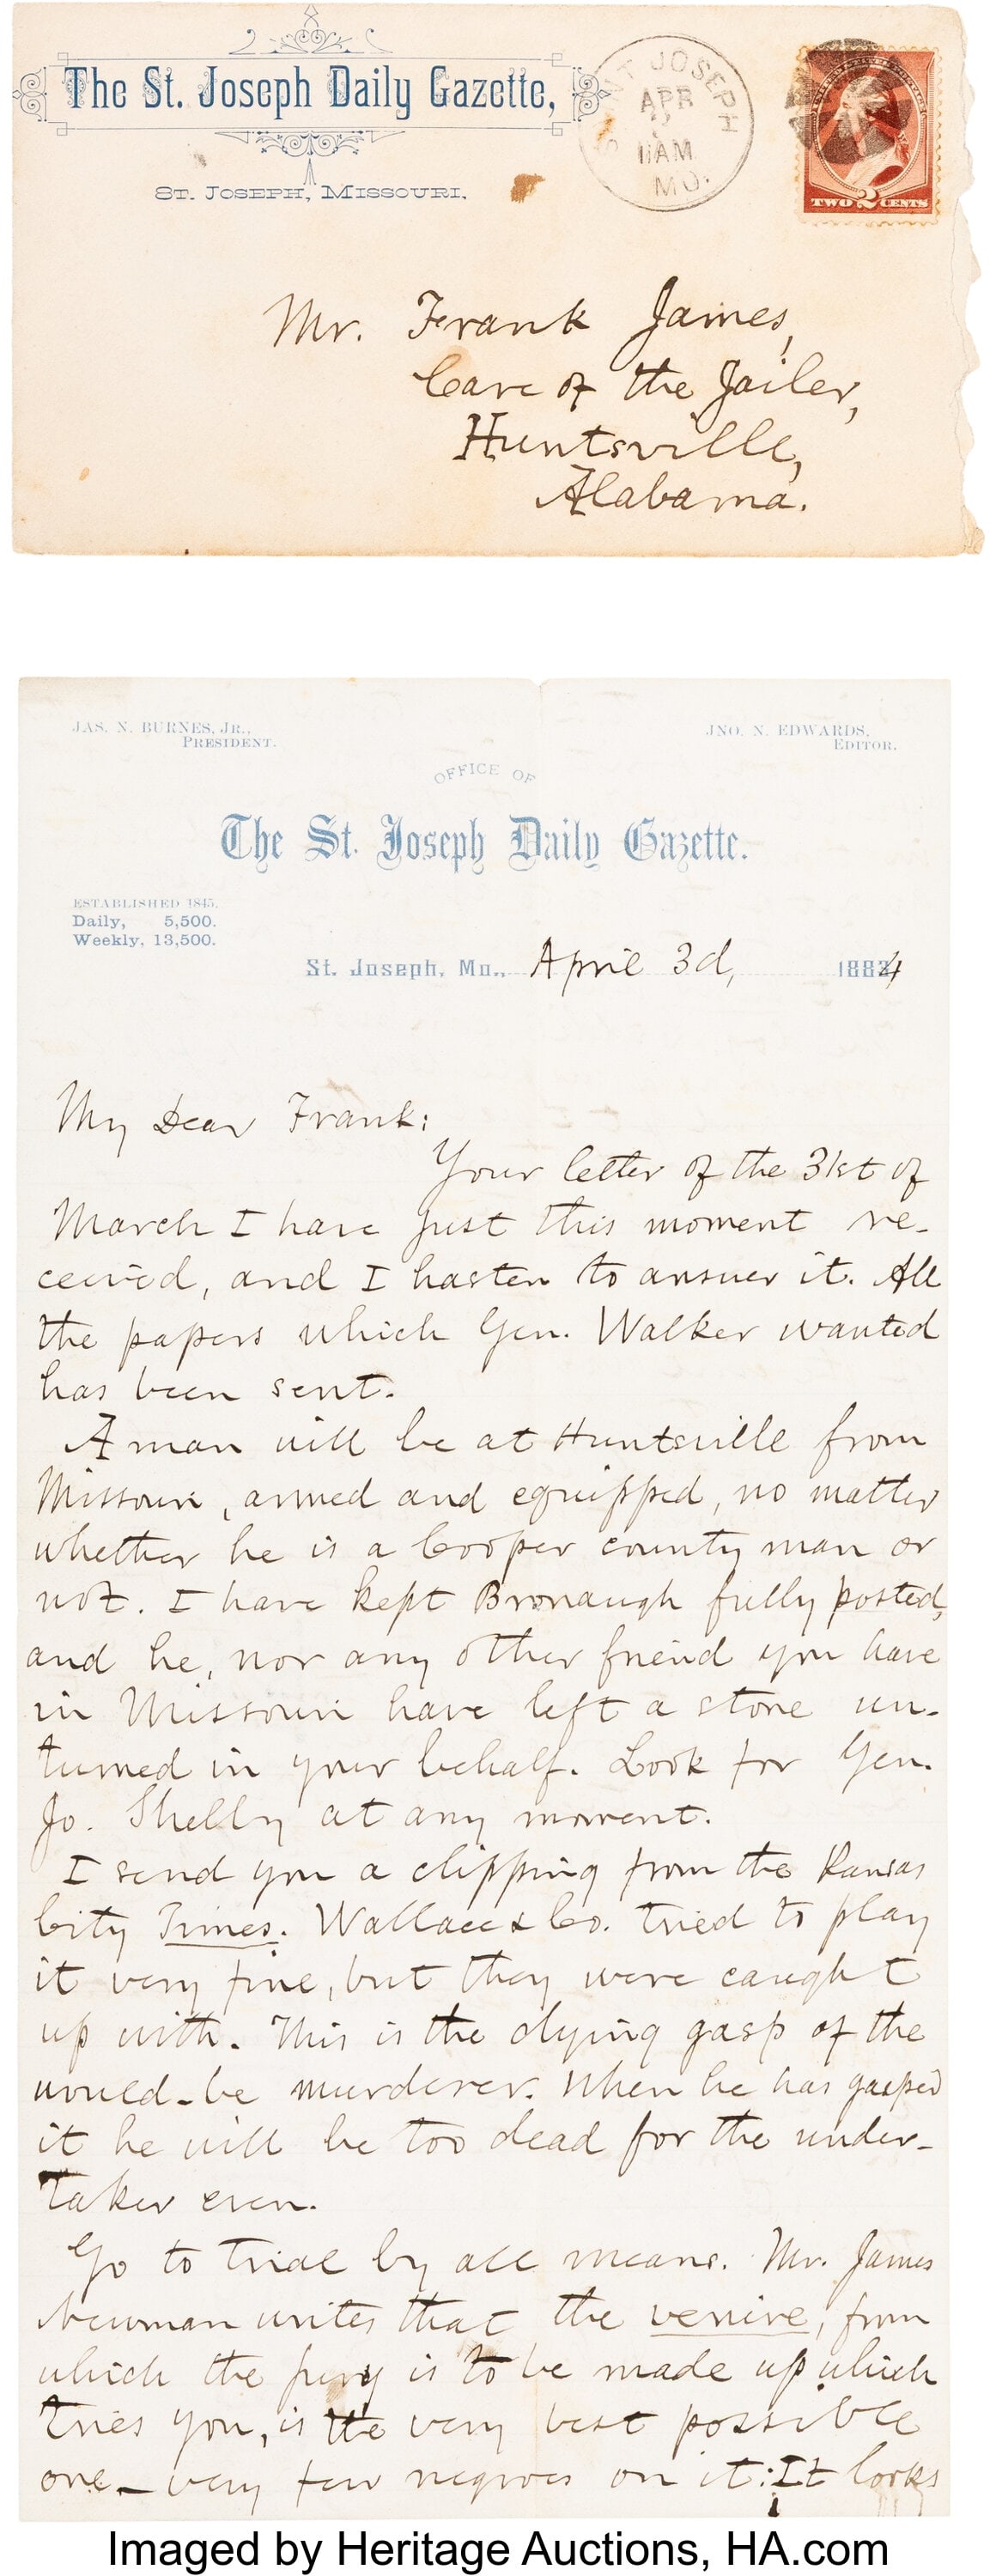 The St. Joseph Daily Gazette,
ST. JOSEPH, MISSOURI.
SAINT JOSEPH
APR
11AM
MO.
TWO 2 CENTS
Mr. Frank James,
Care of the Jailer,
Huntsville,
Alabama.
JAS. N. BURNES, JR.,
PRESIDENT.
JNO. N. EDWARDS,
EDITOR.
OFFICE OF
The St. Joseph Daily Gazette.
ESTABLISHED 1845.
Daily, 5,500.
Weekly, 13,500.
St. Joseph, Mo., April 3d, 1884
My Dear Frank:
Your letter of the 31st of
March I have just this moment re-
ceived, and I hasten to answer it. All
the papers which Gen. Walker wanted
has been sent.
A man will be at Huntsville from
Missouri, armed and equipped, no matter
whether he is a Cooper county man or
not. I have kept Bronaugh fully posted,
and he, nor any other friend you have
in Missouri have left a stone un-
turned in your behalf. Look for Gen.
Jo. Shelby at any moment.
I send you a clipping from the Kansas
City Times. Wallace & Co. tried to play
it very fine, but they were caught
up with. This is the dying gasp of the
would-be murderer. When he has gasped
it he will be too dead for the under-
taker even.
Go to trial by all means. Mr. James
Newman writes that the venire, from
which the jury is to be made up which
tries you, is the very best possible
one - very few negroes on it: It looks
Imaged by Heritage Auctions, HA.com